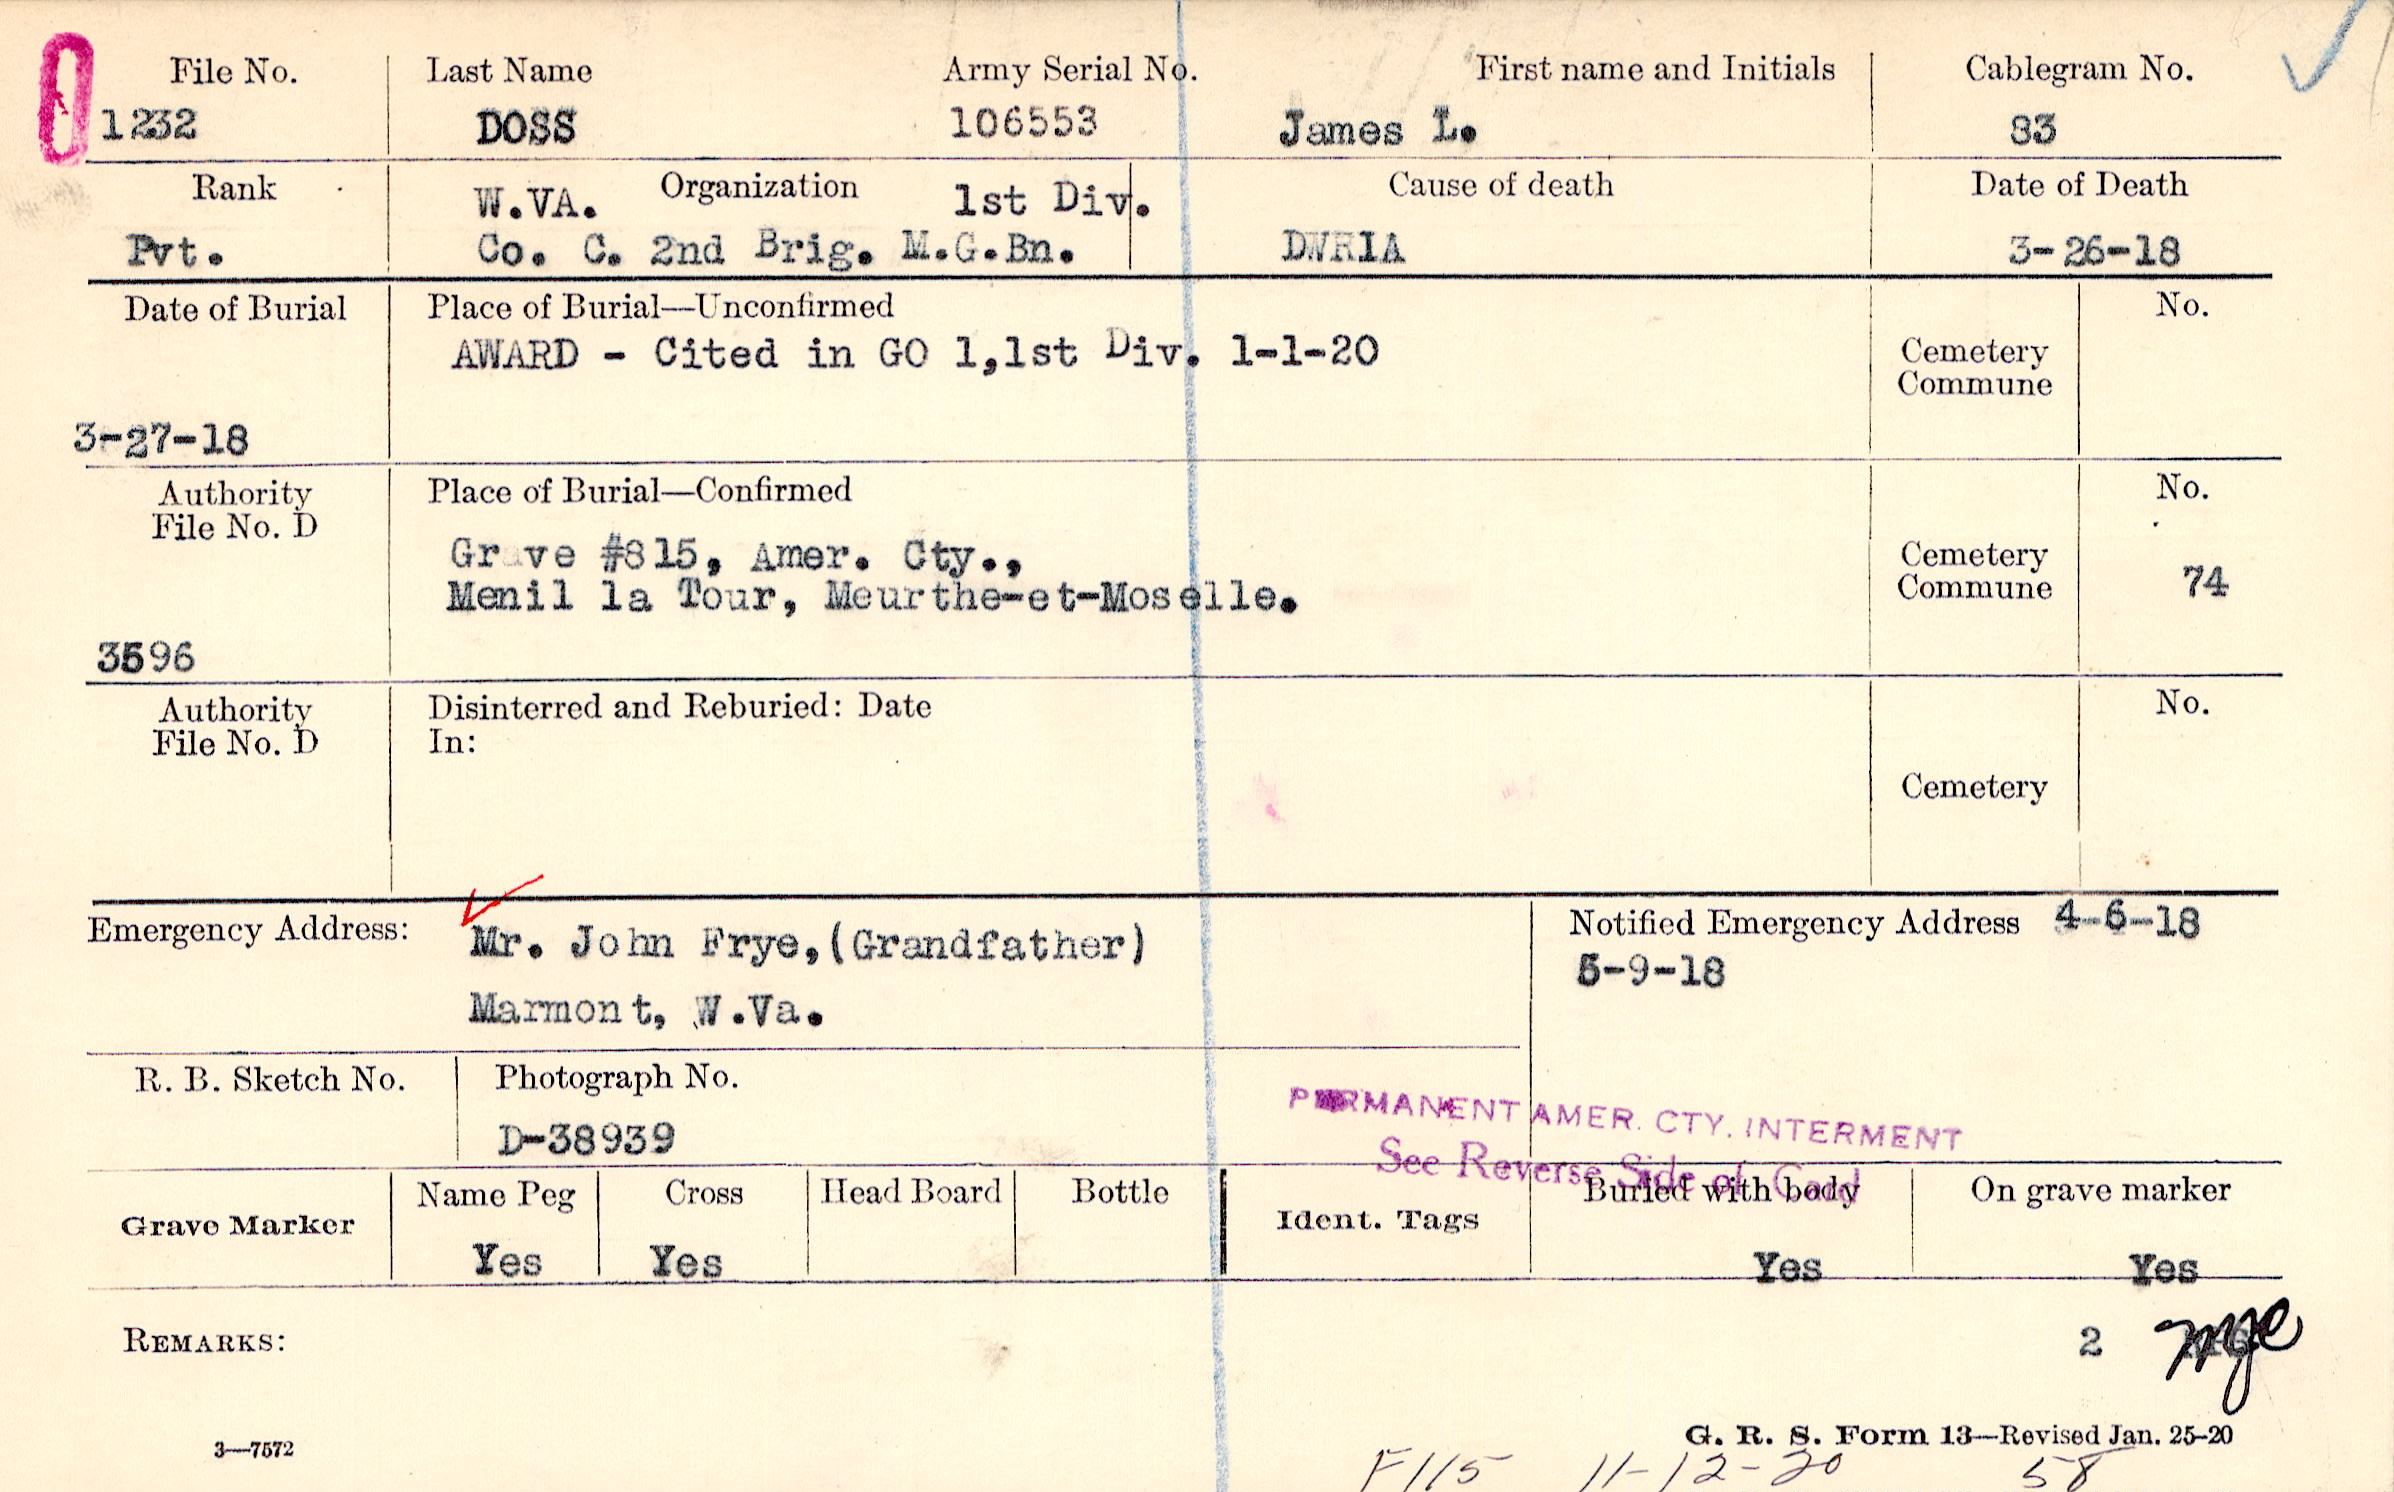 File No. Last Name Army Serial No. First name and Initials Cablegram No.
1232 DOSS 106553 James L. 83
Rank W.VA. Organization 1st Div. Cause of death Date of Death
Pvt. Co. C. 2nd Brig. M.G.Bn. DWRIA 3-26-18
Date of Burial Place of Burial—Unconfirmed No.
AWARD - Cited in GO 1,1st Div. 1-1-20 Cemetery
Commune
3-27-18
Authority Place of Burial—Confirmed No.
File No. D
Grave #815, Amer. Cty., Cemetery
Menil la Tour, Meurthe-et-Moselle. Commune 74
3596
Authority Disinterred and Reburied: Date No.
File No. D In:
Cemetery
Emergency Address: Mr. John Frye,(Grandfather) Notified Emergency Address 4-6-18
5-9-18
Marmont, W.Va.
R. B. Sketch No. Photograph No.
D-38939
PERMANENT AMER. CTY. INTERMENT
See Reverse Side of Card
Grave Marker Name Peg Cross Head Board Bottle Ident. Tags Buried with body On grave marker
Yes Yes Yes Yes
REMARKS: 2
G. R. S. Form 13—Revised Jan. 25-20
3—7572
F115 11-12-20 58